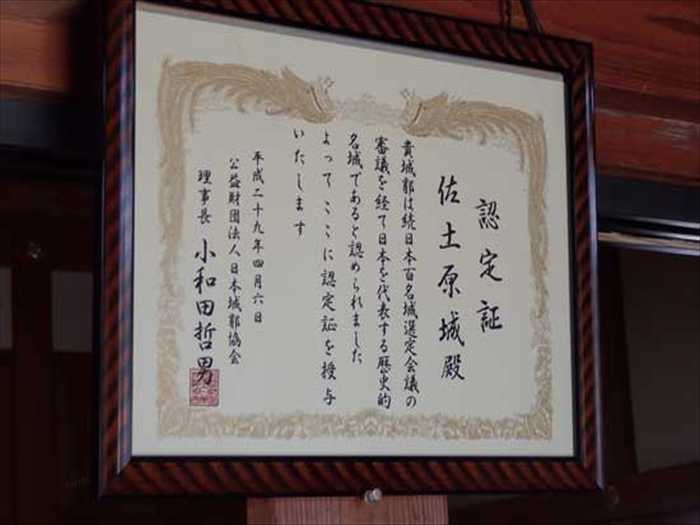 認定証
佐土原城殿
貴城郭は続日本百名城選定会議の
審議を経て日本を代表する歴史的
名城であると認められました
よってここに認定証を授与
いたします
平成二十九年四月六日
公益財団法人日本城郭協会
理事長 小和田哲男